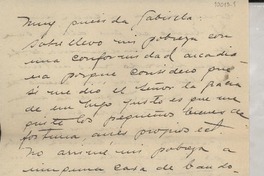 Muy querida Gabriela:
Sobrellevo mi pobreza con
una conformidad arcadia-
na porque considero que
si me dio el Señor la gracia
de un hijo justo es que me
quite los pequeños bienes de
fortuna antes propios et.
No arrimé mi pobreza a
ninguna casa de bando-